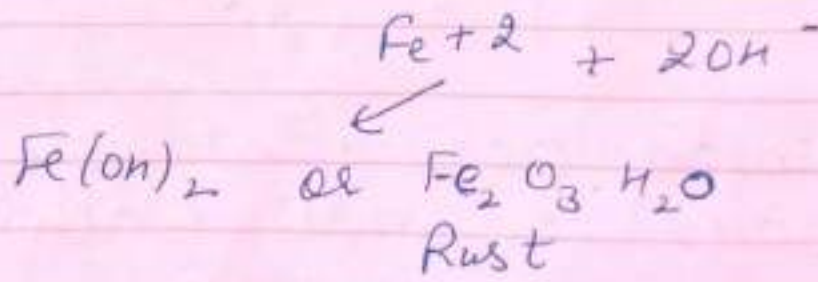 Fe+2 + 2OH⁻
Fe(OH)₂ or Fe₂O₃ H₂O
Rust